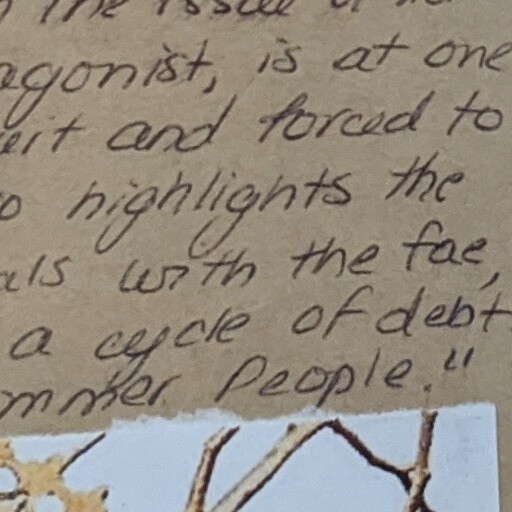 the issue of
agonist, is at one
eit and forced to
o highlights the
als with the fae,
a cycle of debt
mmer People."